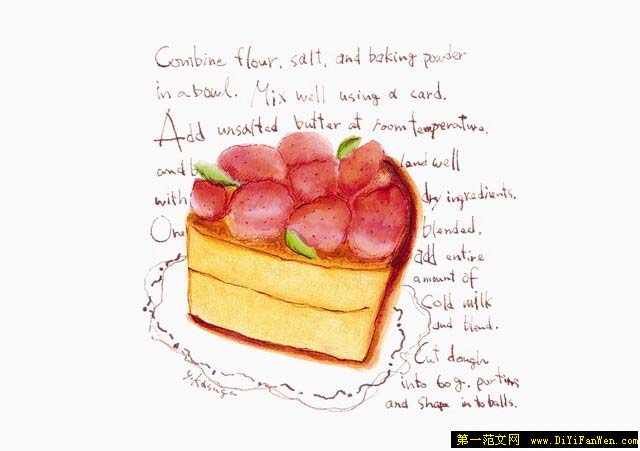 Combine flour, salt, and baking powder
in a bowl. Mix well using a card.
Add unsalted butter at room temperature.
and b land well
with dry ingredients.
One blended,
add entire
amount of
Cold milk
and blend.
Cut dough
into 60g. portins
and shape in to balls.
y.Kasuga
第一范文网 www.DiYiFanWen.com